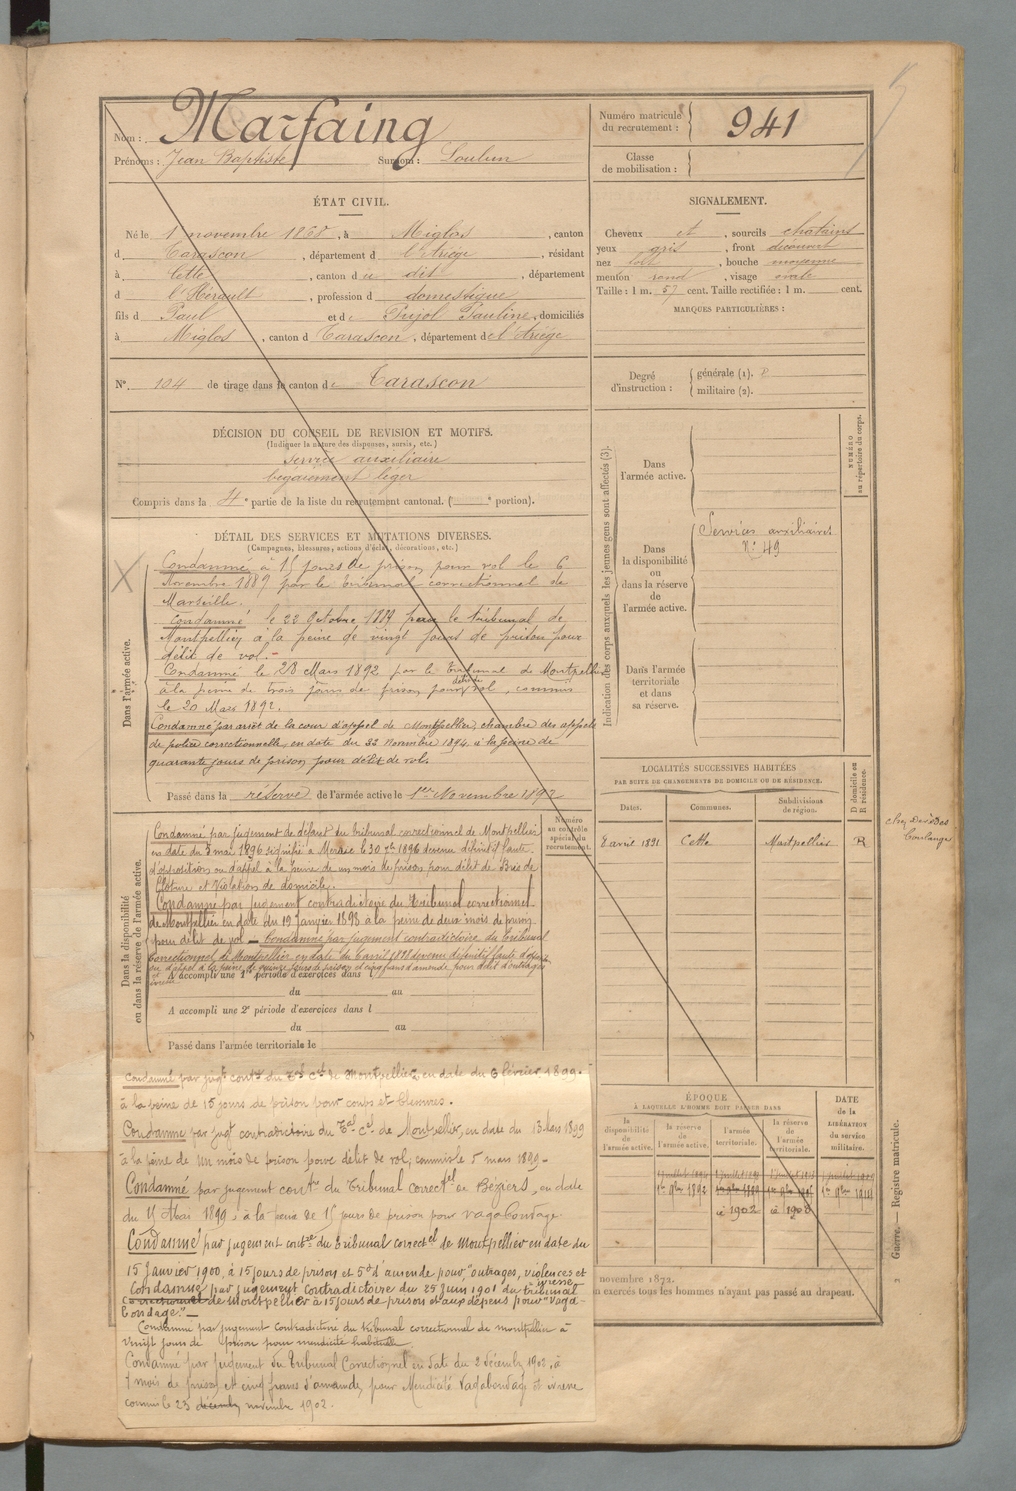 Nom : Marfaing
Prénoms : Jean Baptiste Surnom : Loulun
Numéro matricule du recrutement : 941
Classe de mobilisation :
ÉTAT CIVIL.
Né le 1 novembre 1868, à Miglos, canton
d Tarascon, département d l'Ariège, résidant
à Cette, canton d u dit, département
d l'Hérault, profession d domestique
fils d Paul et de Pujol Pauline, domiciliés
à Miglos, canton d Tarascon, département de l'Ariège
N° 104 de tirage dans le canton de Tarascon
SIGNALEMENT.
Cheveux et, sourcils chatains
yeux gris, front découvert
nez, bouche moyenne
menton rond, visage ovale
Taille : 1 m. 57 cent. Taille rectifiée : 1 m. cent.
MARQUES PARTICULIÈRES :
Degré d'instruction : générale (1). 2
militaire (2).
DÉCISION DU CONSEIL DE REVISION ET MOTIFS.
(Indiquer la nature des dispenses, sursis, etc.)
Service auxiliaire
bégaiement léger
Compris dans la 4e partie de la liste du recrutement cantonal. ( portion).
DÉTAIL DES SERVICES ET MUTATIONS DIVERSES.
(Campagnes, blessures, actions d'éclat, décorations, etc.)
Dans l'armée active.
Condamné à 15 jours de prison pour vol le 6
Novembre 1887 par le tribunal correctionnel de
Marseille.
Condamné le 22 Octobre 1889 par le tribunal de
Montpellier à la peine de vingt jours de prison pour
délit de vol.
Condamné le 28 Mars 1892 par le Tribunal de Montpellier
à la peine de trois jours de prison pour délit de vol, commis
le 20 Mars 1892.
Condamné par arrêt de la cour d'appel de Montpellier, chambre des appels
de police correctionnelle, en date du 22 novembre 1894, à la peine de
quarante jours de prison pour délit de vol.
Passé dans la réserve de l'armée active le 1er Novembre 1892
Dans la disponibilité ou dans la réserve de l'armée active.
Numéro au contrôle spécial du recrutement.
Condamné par jugement de défaut du tribunal correctionnel de Montpellier
en date du 5 mai 1896 signifié à le 30 1896 devenu définitif faute
d'opposition ou d'appel à la peine de un mois de prison pour délit de Bris de
Clôture et Violation de domicile.
Condamné par jugement contradictoire du Tribunal correctionnel
de Montpellier en date du 19 Janvier 1898 à la peine de deux mois de prison
pour délit de vol — Condamné par jugement contradictoire du Tribunal
correctionnel de Montpellier en date du 6 avril 1898 devenu définitif faute d'oppos
ou d'appel à la peine de quinze jours de prison et cinq francs d'amende pour délit d'outrages
et ivresse
A accompli une 1re période d'exercices dans l
du au
A accompli une 2e période d'exercices dans l
du au
Passé dans l'armée territoriale le
Condamné par jugt contre du Tal Cel de Montpellier en date du 6 février 1899.
à la peine de 15 jours de prison pour coups et blessures.
Condamné par jugt contradictoire du Tal Cel de Montpellier, en date du 13 Mars 1899
à la peine de un mois de prison pour délit de vol, commis le 5 mars 1899 -
Condamné par jugement contre du Tribunal correctel de Béziers, en date
du 15 Mai 1899, à la peine de 15 jours de prison pour vagabondage.
Condamné par jugement contre du tribunal correctel de Montpellier en date du
15 Janvier 1900, à 15 jours de prison et 5f d'amende pour "outrages, violences et ivresse
Condamné par jugement contradictoire du 25 Juin 1901 du tribunal
correctionnel de Montpellier à 15 jours de prison et aux dépens pour "Vaga-
bondage."-
Condamné par jugement contradictoire du tribunal correctionnel de Montpellier à
vingt jours de prison pour mendicité habituelle
Condamné par Jugement du Tribunal Correctionnel en date du 2 décembre 1902, à
1 mois de prison et cinq francs d'amende, pour Mendicité Vagabondage et ivresse
commis le 23 décembre novembre 1902.
Indication des corps auxquels les jeunes gens sont affectés (3).
NUMÉRO au répertoire du corps.
Dans l'armée active.
Dans la disponibilité ou dans la réserve de l'armée active.
Services auxiliaires
N: 49
Dans l'armée territoriale et dans sa réserve.
LOCALITÉS SUCCESSIVES HABITÉES
PAR SUITE DE CHANGEMENTS DE DOMICILE OU DE RÉSIDENCE.
Dates. Communes. Subdivisions de région. D domicile ou R résidence.
8 avril 1891 Cette Montpellier R
chez
boulanger
ÉPOQUE
À LAQUELLE L'HOMME DOIT PASSER DANS
DATE de la LIBÉRATION du service militaire.
la disponibilité de l'armée active. la réserve de l'armée active. l'armée territoriale. la réserve de l'armée territoriale.
1er 9bre 1892 1er 9bre 1er 9bre 1er 9bre 1914
à 1902 à 1908
novembre 1872.
n exercés tous les hommes n'ayant pas passé au drapeau.
Guerre. — Registre matricule.
2